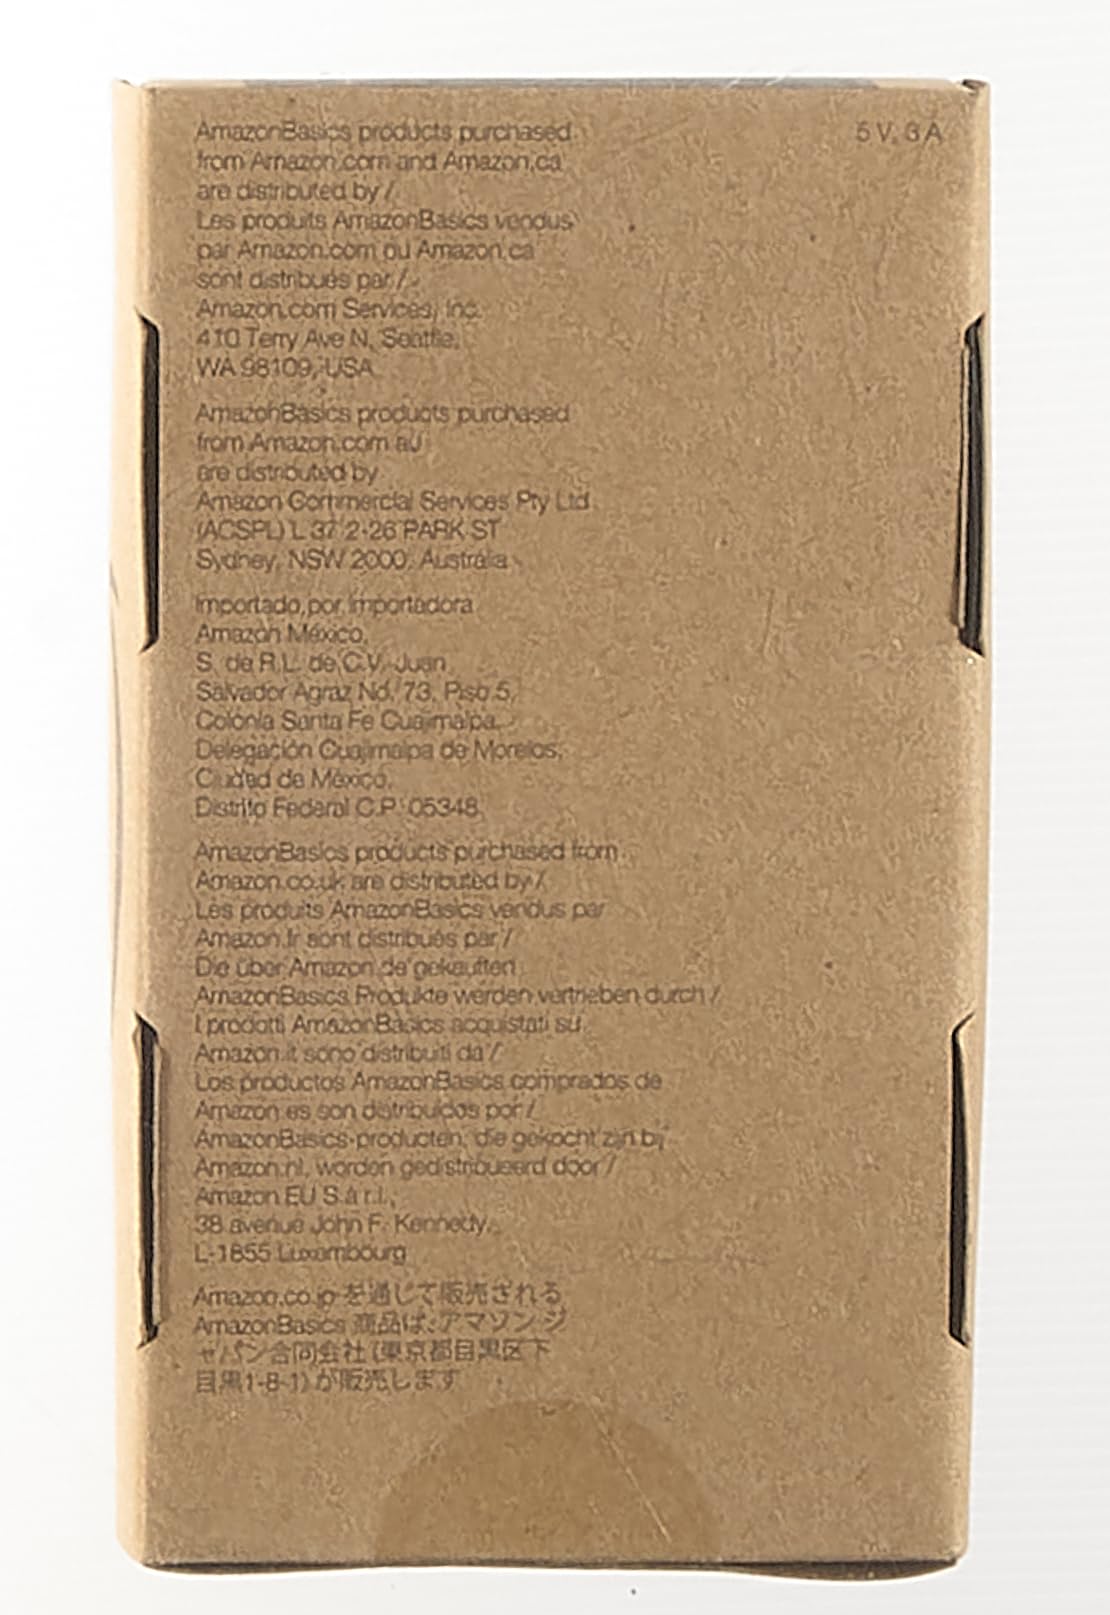 AmazonBasics products purchased
from Amazon.com and Amazon.ca
are distributed by /
Les produits AmazonBasics vendus
par Amazon.com ou Amazon.ca
sont distribués par /
Amazon.com Services, Inc.
410 Terry Ave N, Seattle,
WA 98109, USA
5 V, 3 A
AmazonBasics products purchased
from Amazon.com.au
are distributed by
Amazon Commercial Services Pty Ltd
(ACSPL) L 37 2-26 PARK ST
Sydney, NSW 2000, Australia
Importado por Importadora
Amazon México,
S. de R.L. de C.V. Juan
Salvador Agraz No. 73, Piso 5,
Colonia Santa Fe Cuajimalpa,
Delegación Cuajimalpa de Morelos,
Ciudad de México,
Distrito Federal C.P. 05348
AmazonBasics products purchased from
Amazon.co.uk are distributed by /
Les produits AmazonBasics vendus par
Amazon.fr sont distribués par /
Die über Amazon.de gekauften
AmazonBasics Produkte werden vertrieben durch /
I prodotti AmazonBasics acquistati su
Amazon.it sono distribuiti da /
Los productos AmazonBasics comprados de
Amazon.es son distribuidos por /
AmazonBasics-producten, die gekocht zijn bij
Amazon.nl, worden gedistribueerd door /
Amazon EU S.à r.l.,
38 avenue John F. Kennedy,
L-1855 Luxembourg
Amazon.co.jp を通じて販売される
AmazonBasics 商品は、アマゾン ジ
ャパン合同会社 (東京都目黒区下
目黒1-8-1) が販売します